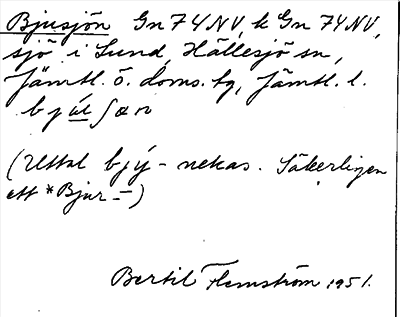 Bjusjön Gn 74 NV, k Gn 74 NV,
sjö i Sund, Hällesjö sn,
Jämtl. ö. doms. tg, Jämtl. l.
(Uttal bjý-nekas. Säkerligen
ett *Bjur-)
Bertil Flemström 1951.